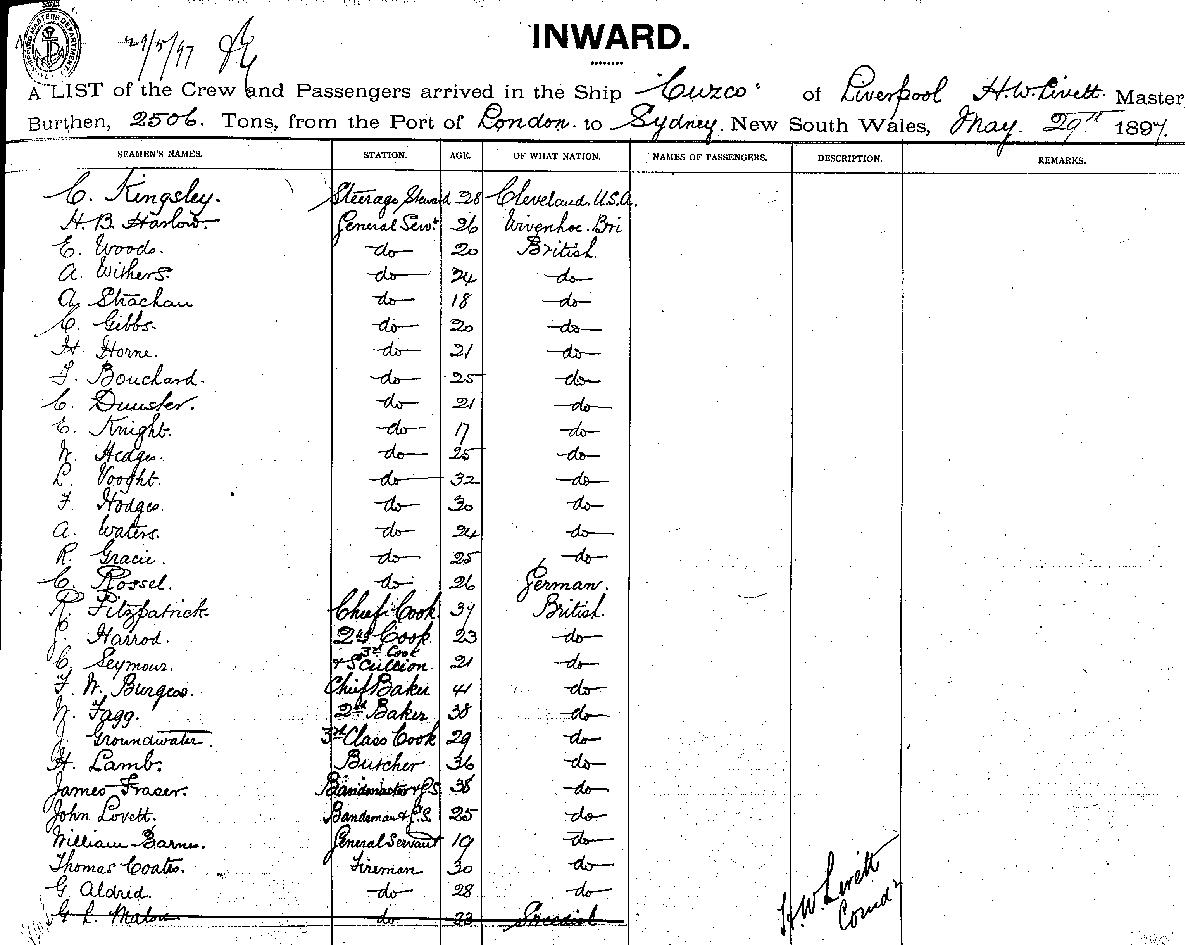 29/5/97
INWARD.
A LIST of the Crew and Passengers arrived in the Ship "Cuzco" of Liverpool H.W. Livett. Master
Burthen, 2506. Tons, from the Port of London. to Sydney. New South Wales, May. 29th 1897.
SEAMEN'S NAMES. STATION. AGE. OF WHAT NATION. NAMES OF PASSENGERS. DESCRIPTION. REMARKS.
C. Kingsley. Steerage Steward 28 Cleveland. U.S.A.
H. B. Harlow. General Servt. 26 Wivenhoe. Bri
E. Woods. do 20 British.
A. Withers. do 24 do
A. Strachan do 18 do
C. Gibbs. do 20 do
H. Horne. do 21 do
F. Bouchard. do 25 do
C. Dunster. do 21 do
E. Knight. do 17 do
W. Hedges. do 25 do
L. Vooght. do 32 do
F. Hodges. do 30 do
A. Waters. do 24 do
R. Gracie. do 25 do
C. Rossel. do 26 German.
R. Fitzpatrick Chief Cook 39 British.
J. Harrod. 2nd Cook. 23 do
C. Seymour. 3rd Cook & Scullion. 21 do
F. W. Burgess. Chief Baker 41 do
W. Fagg. 2nd Baker 38 do
J. Groundwater. 3rd Class Cook 29 do
H. Lamb. Butcher 36 do
James Fraser. Bandmaster & G.S. 38 do
John Lovett. Bandsman & G.S. 25 do
William Barnes. General Servant 19 do
Thomas Coates. Fireman 30 do
G Aldred. do 28 do
G. L. do 22 Swedish
H.W. Livett
Comdr